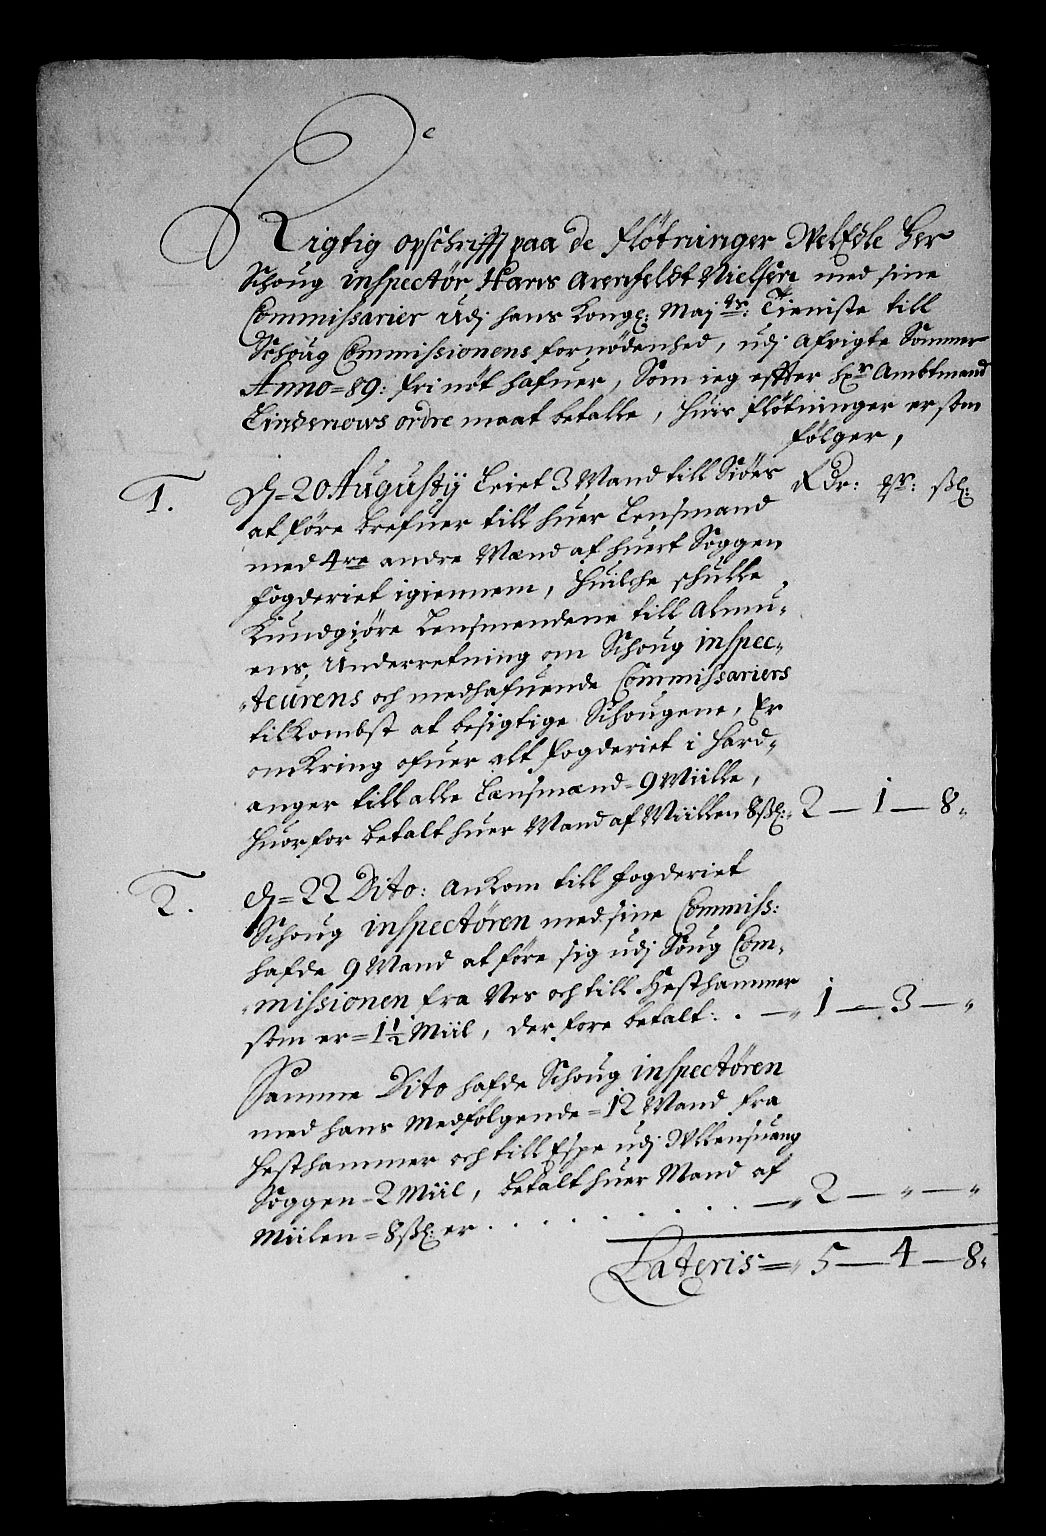 Rigtig opschrifft paa de flötninger Welædle Her
Schoug inspectör Hans Arenfeldt Nielsen med sine
Commissarier Udj hans Kongl: Maj:ts: Tieniste till
Schoug Commissionens fornödenhed, udj afvigte Sommer
Anno=89: fri nöt hafuer, Som ieg effter hr: Ambtmand
Lindenows ordre maat betalle, huis flötninger er som
fölger,
Rdr: ort: ssl:
1. d=20 Augustij Leiet 3 Mand till Siöes
at före brefuer till huer Lensmand
med 4re andre Mænd af huert Soggen
fogderiet igiennem, huilche skulle
Kundgiöre Lensmendene till almu-
ens, Underretning om Schoug inspec-
teurens och medhafuende Commissariers
tilkombst at besigtige Schougene, Er
omkring ofuer alt fogderiet i Hard-
anger till alle Lænsmænd= 9 Miille,
huorfor betalt huer Mand af Miillen 8ssl: 2 — 1 — 8
2. d=22 Dito: ankom till fogderiet
Schoug inspectören med sine Commiss:
hafde 9 Mand at före sig udj Soug Com-
missionen fra Nes och till Hesthammer
som er=1½ Miil, derfore betalt: . — 1 — 3 — „
Samme Dito hafde Schoug inspectören
med hans Medfölgende=12 Mand fra
Hesthammer och till Espe udj Ullensuang
Soggen=2 Miil, betalt huer Mand af
Miilen=8ssl: er . . . . . . . . . . — 2 — „ — „
Lateris= 5 — 4 — 8